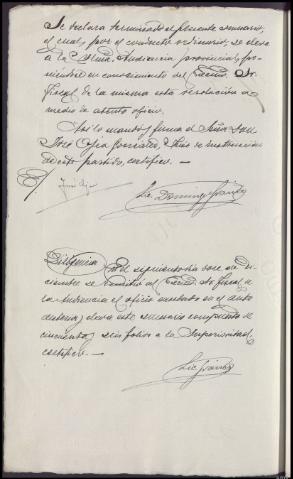 Se declara terminado el presente sumario,
el cual, por el conducto ordinario, se eleva
a la Ilma. Audiencia provincial, po-
niéndose en conocimiento del Excmo. Sr.
Fiscal de la misma esta resolución a
medio de atento oficio.
Así lo mandó y firma el Señor Don
José Cejia González, Juez de instrucción
de este partido, certifico. —
Lic. Domingo
Diligencia En el siguiente día doce de Di-
ciembre se remitió al Excmo. Sr. fiscal de
la Audiencia el oficio mandado en el auto
anterior y elevo este sumario compuesto de
cincuenta y seis folios a la Superioridad,
certifico. —
Lic.